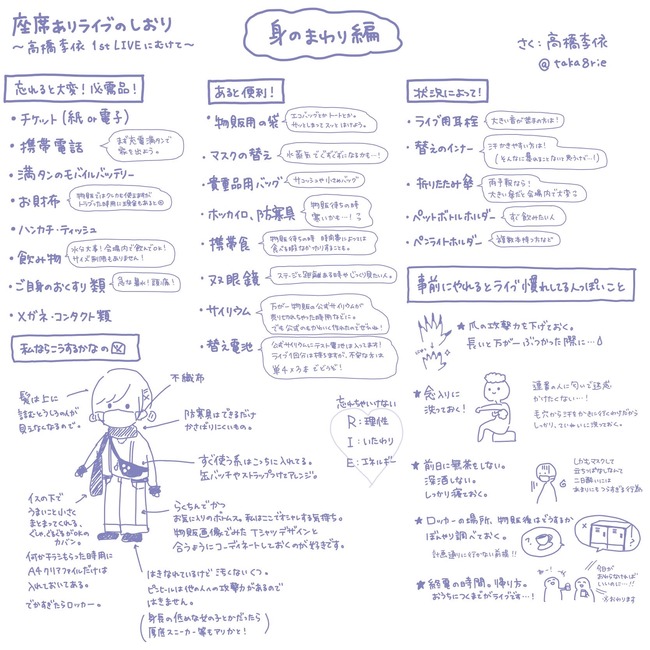 座席ありライブのしおり
〜高橋李依 1st LIVEにむけて〜
身のまわり編
さく：高橋李依
@taka8rie
忘れると大変！必需品！
・チケット(紙or電子)
・携帯電話
まず充電満タンで
家を出よう。
・満タンのモバイルバッテリー
・お財布
・ハンカチ・ティッシュ
・飲み物
水分大事！会場内で飲んでOK！
サイズ制限もありません！
・ご自身のおくすり類
急な暴れ！頭痛！
・メガネ・コンタクト類
あると便利！
・物販用の袋
エコバッグとかトートとか。
サッとしまってスッとほけよう。
・マスクの替え
水蒸気でぐずぐずになるかも…！
・貴重品用バッグ
サコッシュや小さめバッグ
・ホッカイロ、防寒具
物販待ちの時
寒いかも…！
・携帯食
物販待ちの時 時間帯によっては
食べる暇なかったりすることも。
・双眼鏡
ステージと距離ある時やじっくり見たい人。
・サイリウム
万が一物販の公式サイリウムが
売り切れちゃった時などに。
でも公式のもかわいく作れたのでぜひね！
・替え電池
公式サイリウムにテスト電池は入ってます！
ライブ1回分は持ちますが、不安な方は
単4×3本でどうぞ！
状況によって！
・ライブ用耳栓
大きい音が苦手の方は！
・替えのインナー
汗かきやすい方は！
(そんなに暴れることないと思うけど…！)
・折りたたみ傘
雨予報なら！
大きい傘だと会場内で大変
・ペットボトルホルダー
すぐ飲みたい人
・ペンライトホルダー
複数本持つ方など
事前にやれるとライブ慣れしてる人っぽいこと
★爪の攻撃力を下げておく。
長いと万が一ぶつかった際に…
★念入りに
洗っておく！
運事の人に匂いで迷惑
かけたくない…！
毛穴から汗をかきに行くわけだから
しっかり、ていねいに洗っておく。
★前日に無茶をしない。
深酒しない。
しっかり寝ておく。
しかもマスクして
立ちっぱなしなんて
二日酔いには
あまりにもつらすぎる行為
★ロッカーの場所、物販後はどうするか
ぼんやり調べておく。
計画通りに行かない前提!!
★終演の時間。帰り方。
おうちにつくまでがライブです…！
今日が
おわらなければ
いいのに…!!
※おわります
私ならこうするかなの図
髪は上に
詰むとうしろの人が
見えなくなるので。
不織布
防寒具はできるだけ
かさばりにくいもの。
すぐ使う系はこっちに入れてる。
缶バッチやストラップつけてアレンジ。
イスの下で
うまいこと小さく
まとまってくれる、
くしゃぐしゃになるがOKの
カバン。
何かチラシもらった時用に
A4クリアファイルだけは
入れておいてある。
でかすぎたらロッカー。
らくちんでかつ
お気に入りのボトムス。私はここでオシャレする気持ち。
物販画像でみたTシャツデザインと
合うようにコーディネートしておくのが好きです。
はきなれているけど汚くないくつ。
ピンヒールは他の人への攻撃力があるので
はきません。
(身長の低めな女の子とかだったら
厚底スニーカー等もアリかと！)
忘れちゃいけない
R：理性
I：いたわり
E：エネルギー